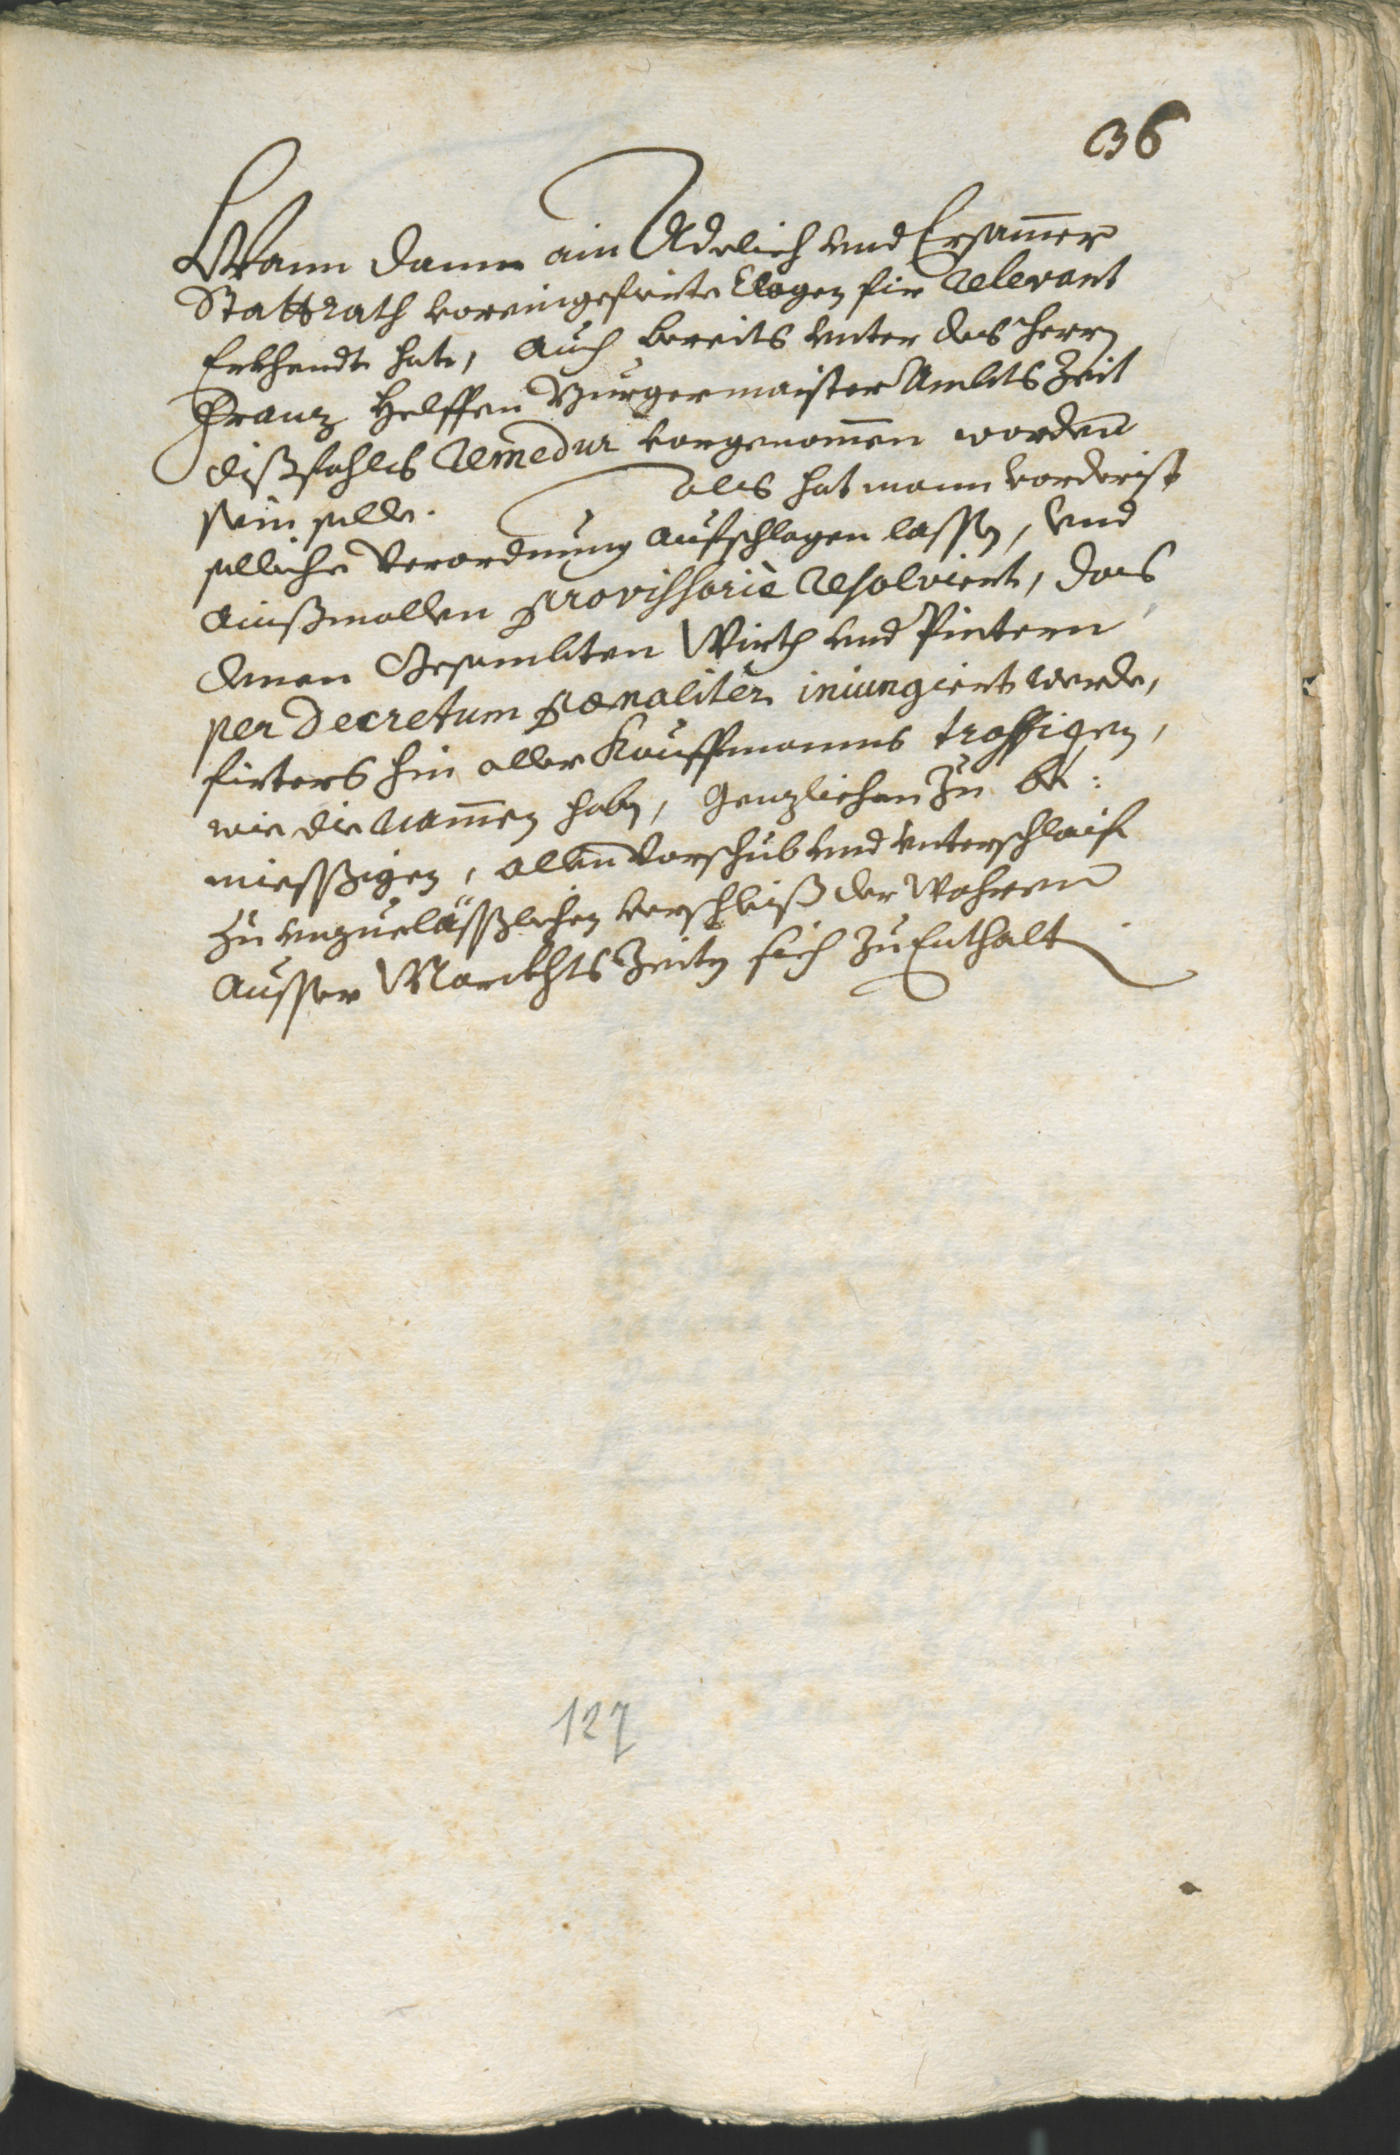 36
Wann dann ain Adelich und Ersamer
Stattrath voreingefierte Clagen fir relevant
Erkhendt hate, auch bereits unter des herrn
Franz Helffen Burgermaister Ambts Zeit
dißfahls Remedur vorgenomen worden
sein solle. als hat mann vorderist
solliche Verordnung aufschlagen lassen, und
ainßmallen provissoriè resolviert, das
denen Gesambten Wirth und Pintern
per Decretum pænalitèr iniungiert werde,
firters hin aller Kauffmanns traffigen,
wie die namen haben, genzlichen zu be:
miessigen, allen vorschub und unterschlaif
zu unzuelässlichen verschleiß der Wahren
ausser Marckhts Zeiten sich zu Enthalten
127